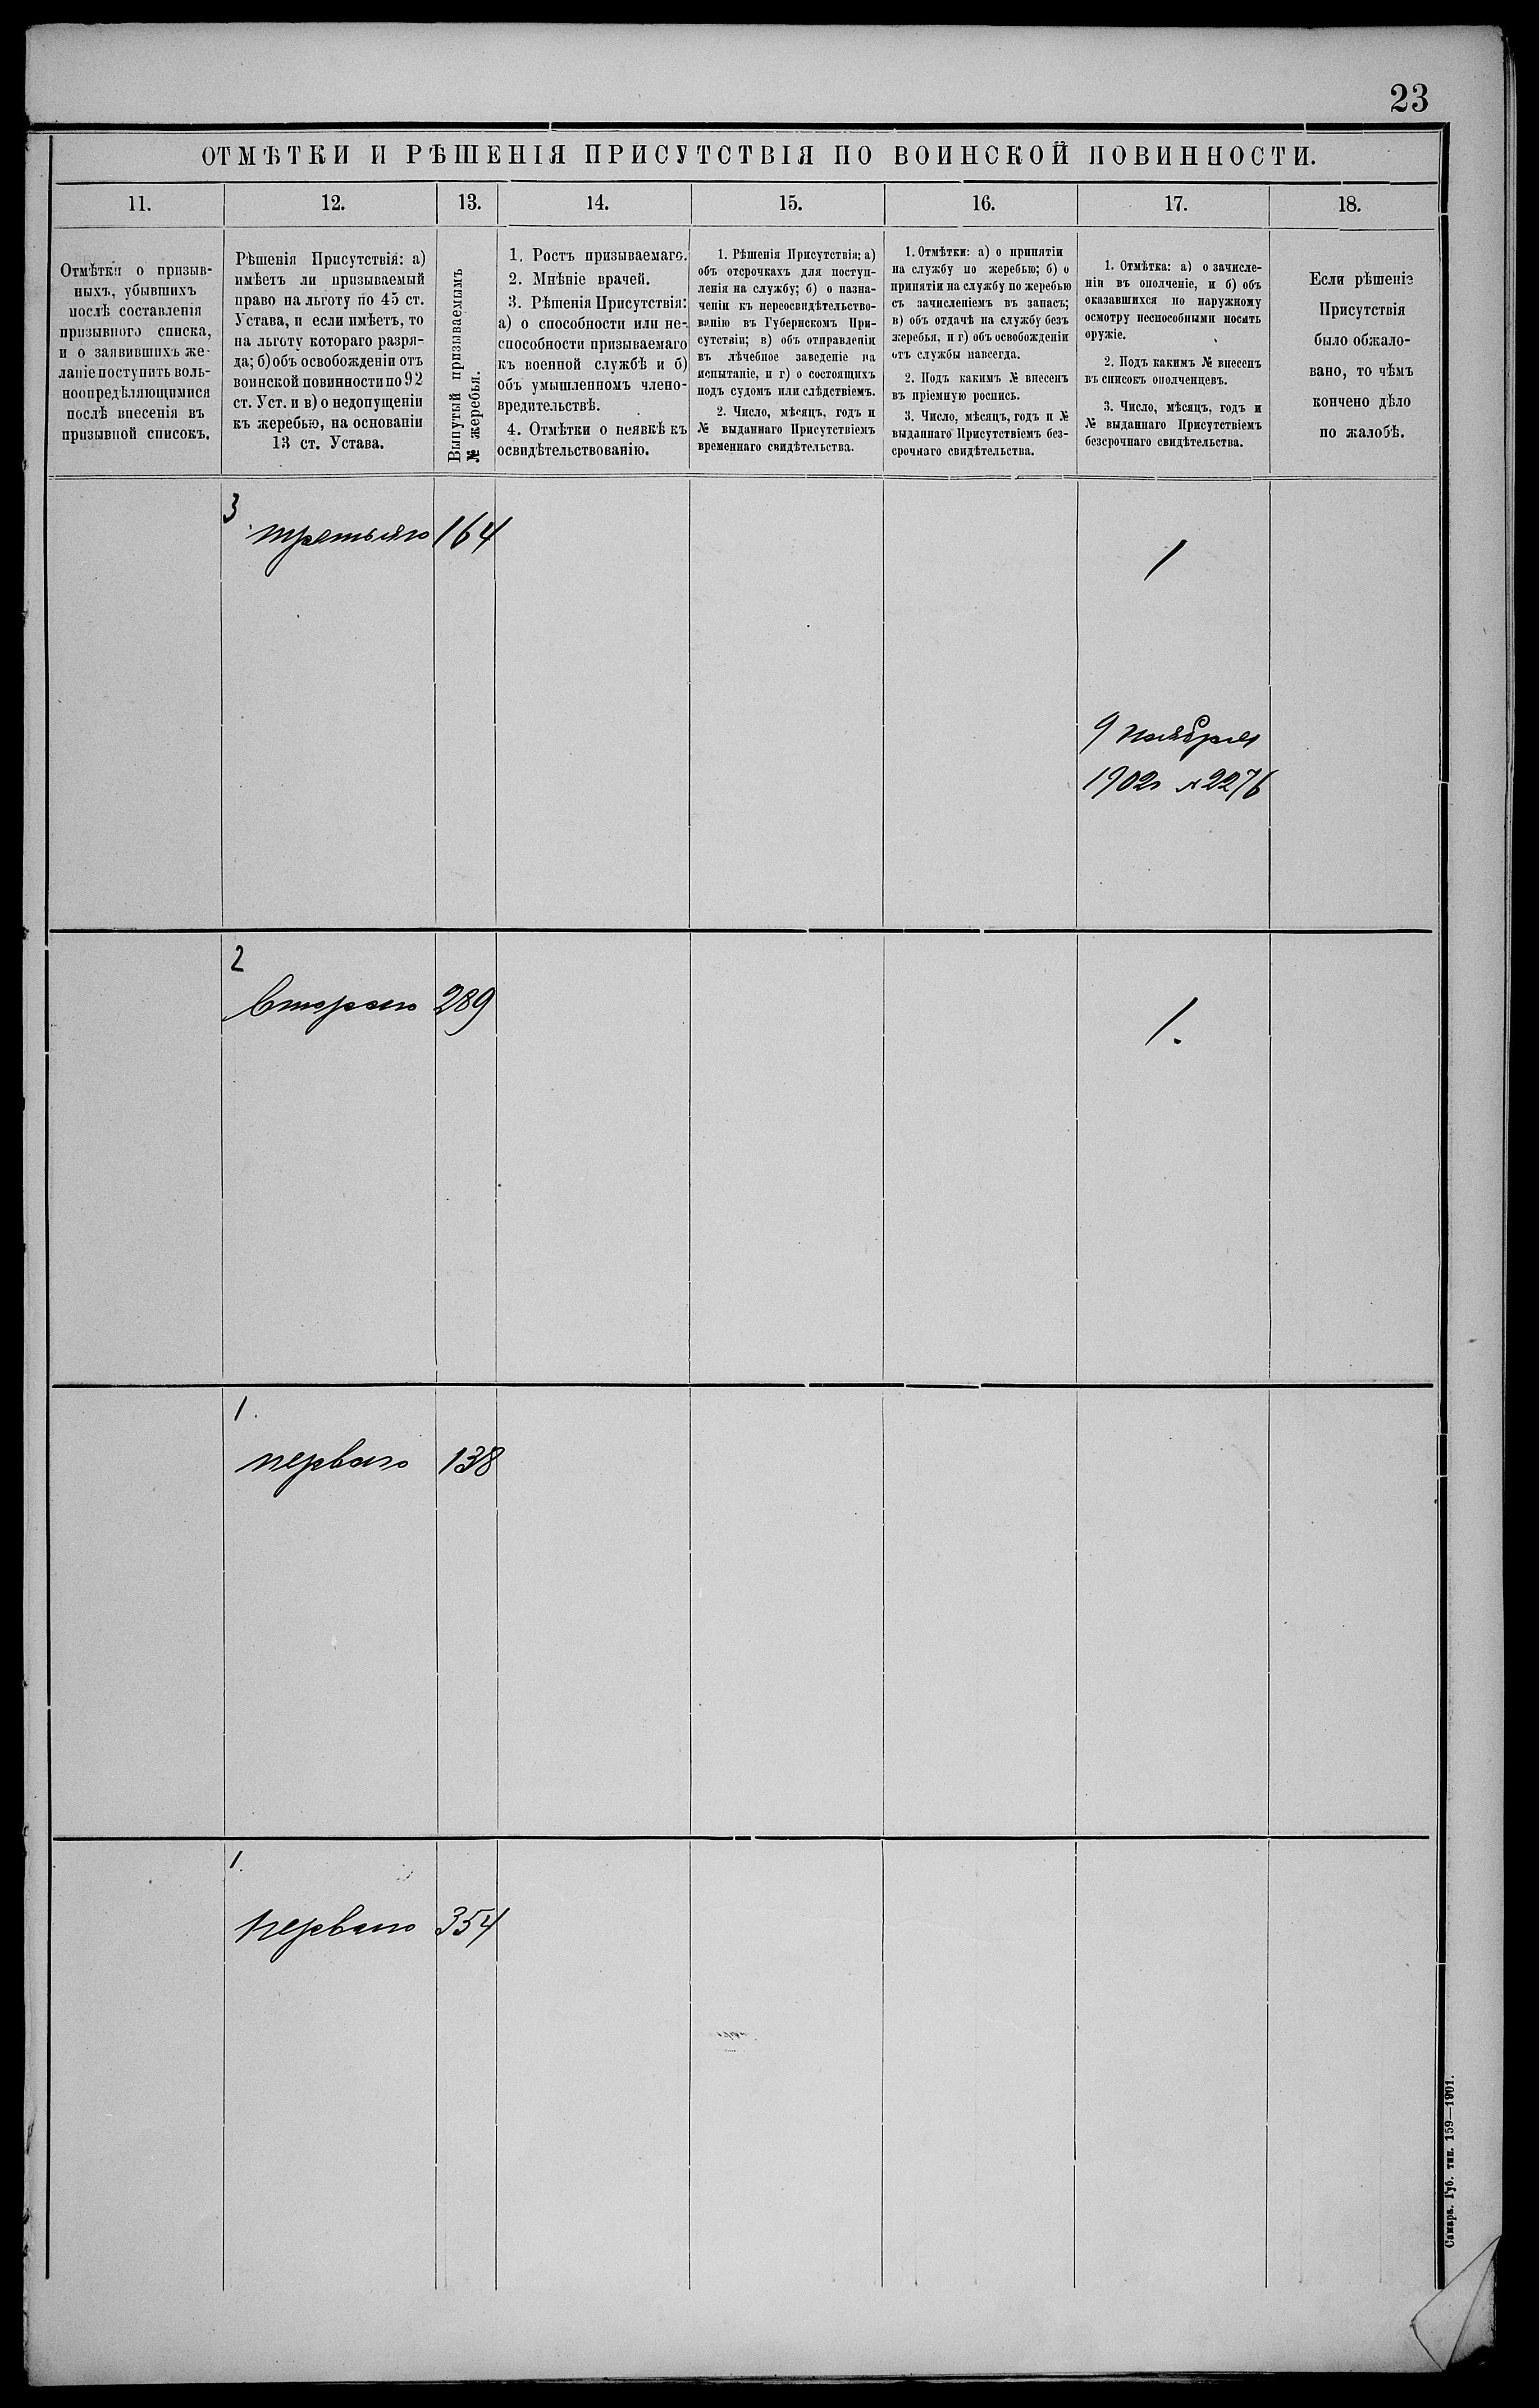 23
ОТМѢТКИ И РѢШЕНІЯ ПРИСУТСТВІЯ ПО ВОИНСКОЙ ПОВИННОСТИ.
11.
12.
13.
14.
15.
16.
17.
18.
Отмѣтки о призыв-
ныхъ, убывшихъ
послѣ составленія
призывного списка,
и о заявившихъ же-
ланіе поступить воль-
ноопредѣляющимися
послѣ внесенія въ
призывной списокъ.
Рѣшенія Присутствія: а)
имѣетъ ли призываемый
право на льготу по 45 ст.
Устава, и если имѣетъ, то
на льготу котораго разря-
да; б) объ освобожденіи отъ
воинской повинности по 92
ст. Уст. и в) о недопущеніи
къ жеребью, на основаніи
13 ст. Устава.
Вынутый призываемымъ
№ жеребья.
1. Ростъ призываемаго.
2. Мнѣніе врачей.
3. Рѣшенія Присутствія:
а) о способности или не-
способности призываемаго
къ военной службѣ и б)
объ умышленномъ члено-
вредительствѣ.
4. Отмѣтки о неявкѣ къ
освидѣтельствованію.
1. Рѣшенія Присутствія: а)
объ отсрочкахъ для поступ-
ленія на службу; б) о назна-
ченіи къ переосвидѣтельство-
ванію въ Губернскомъ При-
сутствіи; в) объ отправленіи
въ лѣчебное заведеніе на
испытаніе, и г) о состоящихъ
подъ судомъ или слѣдствіемъ.
2. Число, мѣсяцъ, годъ и
№ выданнаго Присутствіемъ
временнаго свидѣтельства.
1. Отмѣтки: а) о принятіи
на службу по жеребью; б) о
принятіи на службу по жеребью
съ зачисленіемъ въ запасъ;
в) объ отдачѣ на службу безъ
жеребья, и г) объ освобожденіи
отъ службы навсегда.
2. Подъ какимъ № внесенъ
въ пріемную роспись.
3. Число, мѣсяцъ, годъ и №
выданнаго Присутствіемъ без-
срочнаго свидѣтельства.
1. Отмѣтка: а) о зачисле-
ніи въ ополченіе, и б) объ
оказавшихся по наружному
осмотру неспособными носить
оружіе.
2. Подъ какимъ № внесенъ
въ списокъ ополченцевъ.
3. Число, мѣсяцъ, годъ и
№ выданнаго Присутствіемъ
безсрочнаго свидѣтельства.
Если рѣшеніе
Присутствія
было обжало-
вано, то чѣмъ
кончено дѣло
по жалобѣ.
3
третьяго 164
1
9 ноября
1902 г №2276
2
Второго 289
1.
1.
перваго 138
1.
перваго 354
Самара. Губ. тип. 159—1901.